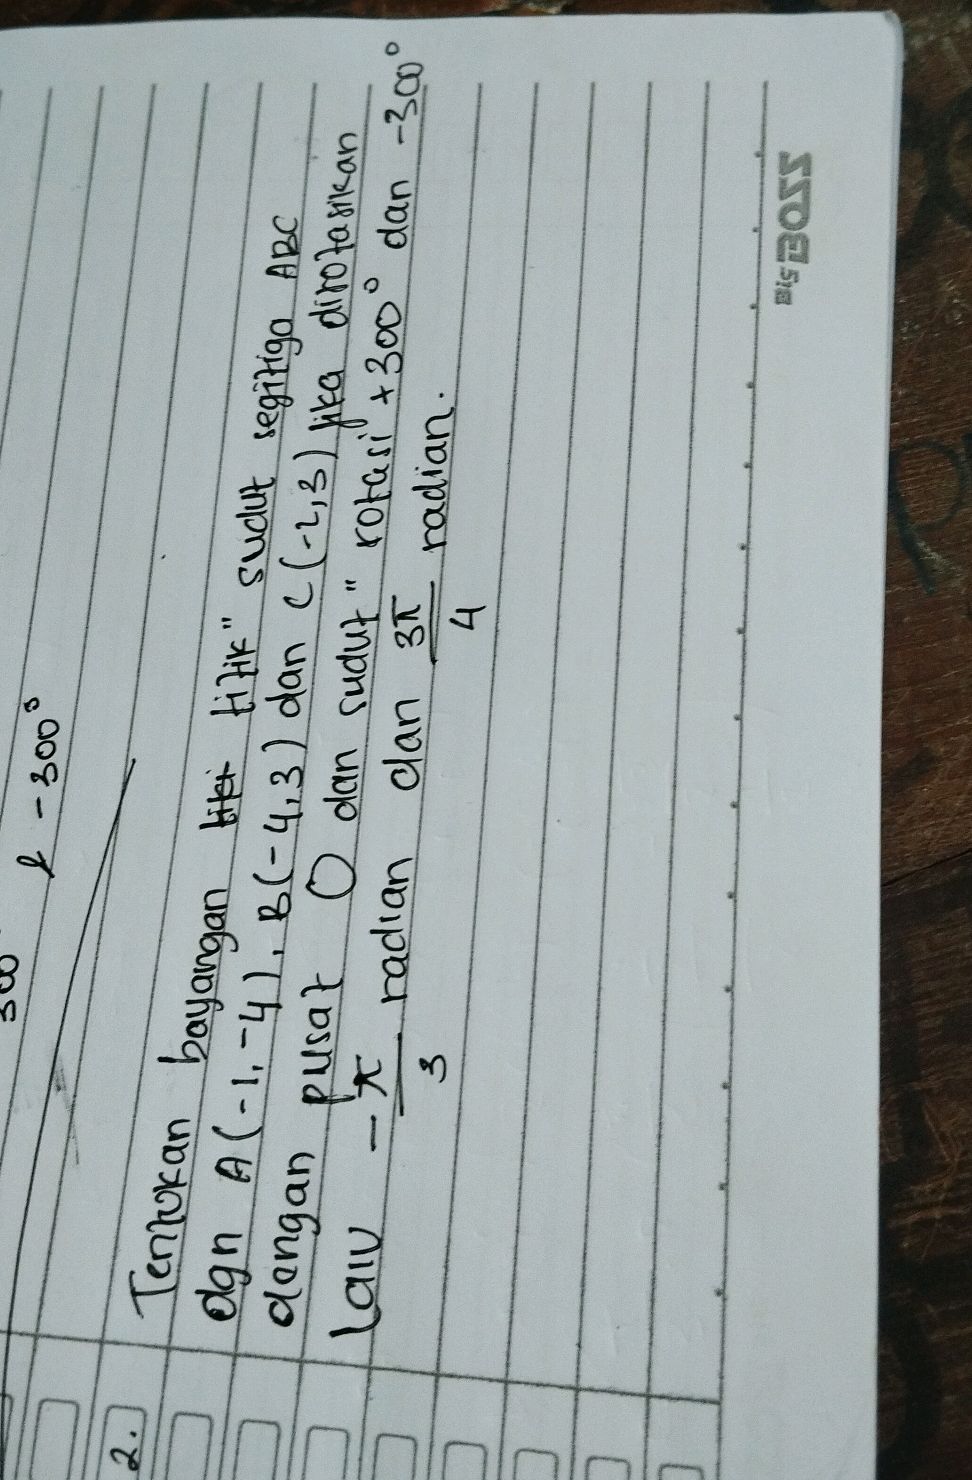 & -300°
2. Tentukan bayangan titik" sudut segitiga ABC
dgn A(-1,-4), B(-4,3) dan C(-2,3) jika dirotasikan
dengan pusat O dan sudut" rotasi +300° dan -300°
Lalu -π/3 radian dan 3π/4 radian.